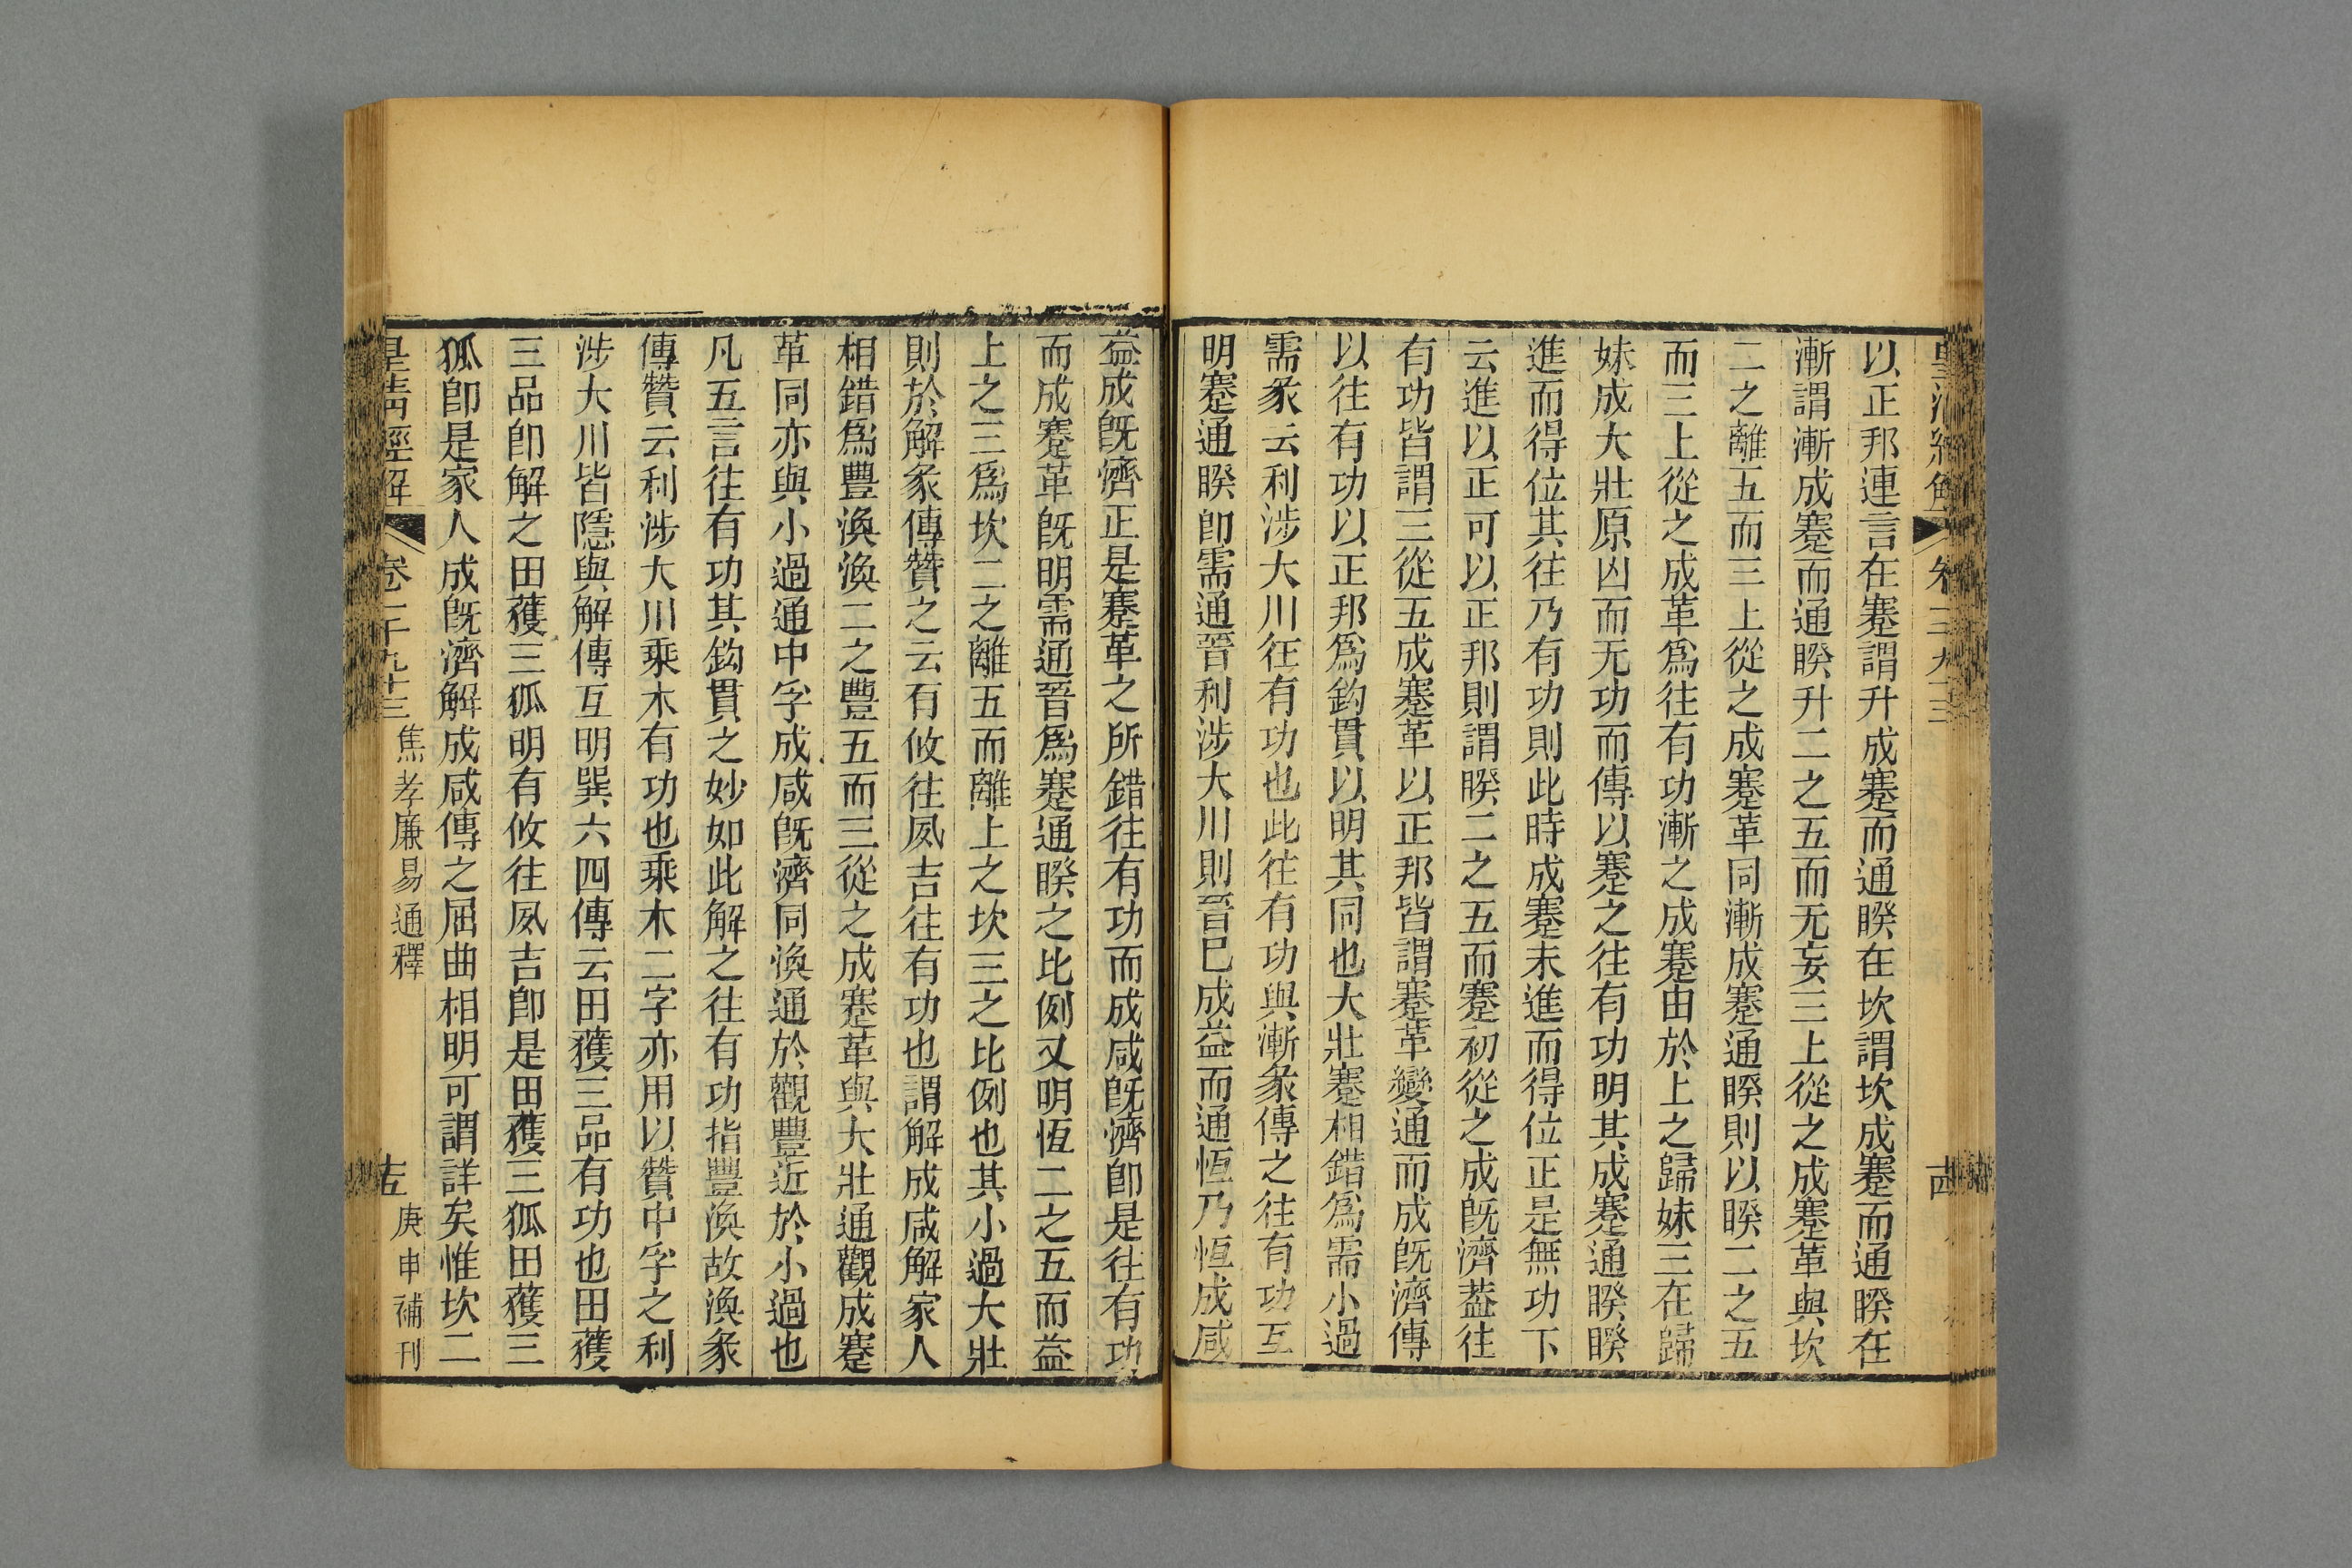 以正邦連言在蹇謂升成蹇而通睽在坎謂坎成蹇而通睽在
漸謂漸成蹇而通睽升二之五而无妄三上從之成蹇革與坎
二之離五而三上從之成蹇革同漸成蹇通睽則以睽二之五
而三上從之成革爲往有功漸之成蹇由於上之歸妹三在歸
妹成大壯原凶而无功而傳以蹇之往有功明其成蹇通睽睽
進而得位其往乃有功則此時成蹇未進而得位正是無功下
云進以正可以正邦則謂睽二之五而蹇初從之成旣濟葢往
有功皆謂三從五成蹇革以正邦皆謂蹇革變通而成旣濟傳
以往有功以正邦爲鈎貫以明其同也大壯蹇相錯爲需小過
需彖云利涉大川往有功也此往有功與漸彖傳之往有功互
明蹇通睽卽需通晉利涉大川則晉巳成益而通恆乃恆成咸
益成旣濟正是蹇革之所錯往有功而成咸旣濟卽是往有功
而成蹇革旣明需通晉爲蹇通睽之比例又明恆二之五而益
上之三爲坎二之離五而離上之坎三之比例也其小過大壯
則於解彖傳贊之云有攸往夙吉往有功也謂解成咸解家人
相錯爲豐渙渙二之豐五而三從之成蹇革與大壯通觀成蹇
革同亦與小過通中孚成咸旣濟同渙通於觀豐近於小過也
凡五言往有功其鈎貫之妙如此解之往有功指豐渙故渙彖
傳贊云利涉大川乘木有功也乘木二字亦用以贊中孚之利
涉大川皆隱與解傳互明巽六四傳云田獲三品有功也田獲
三品卽解之田獲三狐明有攸往夙吉卽是田獲三狐田獲三
狐卽是家人成旣濟解成咸傳之屈曲相明可謂詳矣惟坎二
皇清經解
卷一千九十三
焦孝廉易通釋
庚申補刊